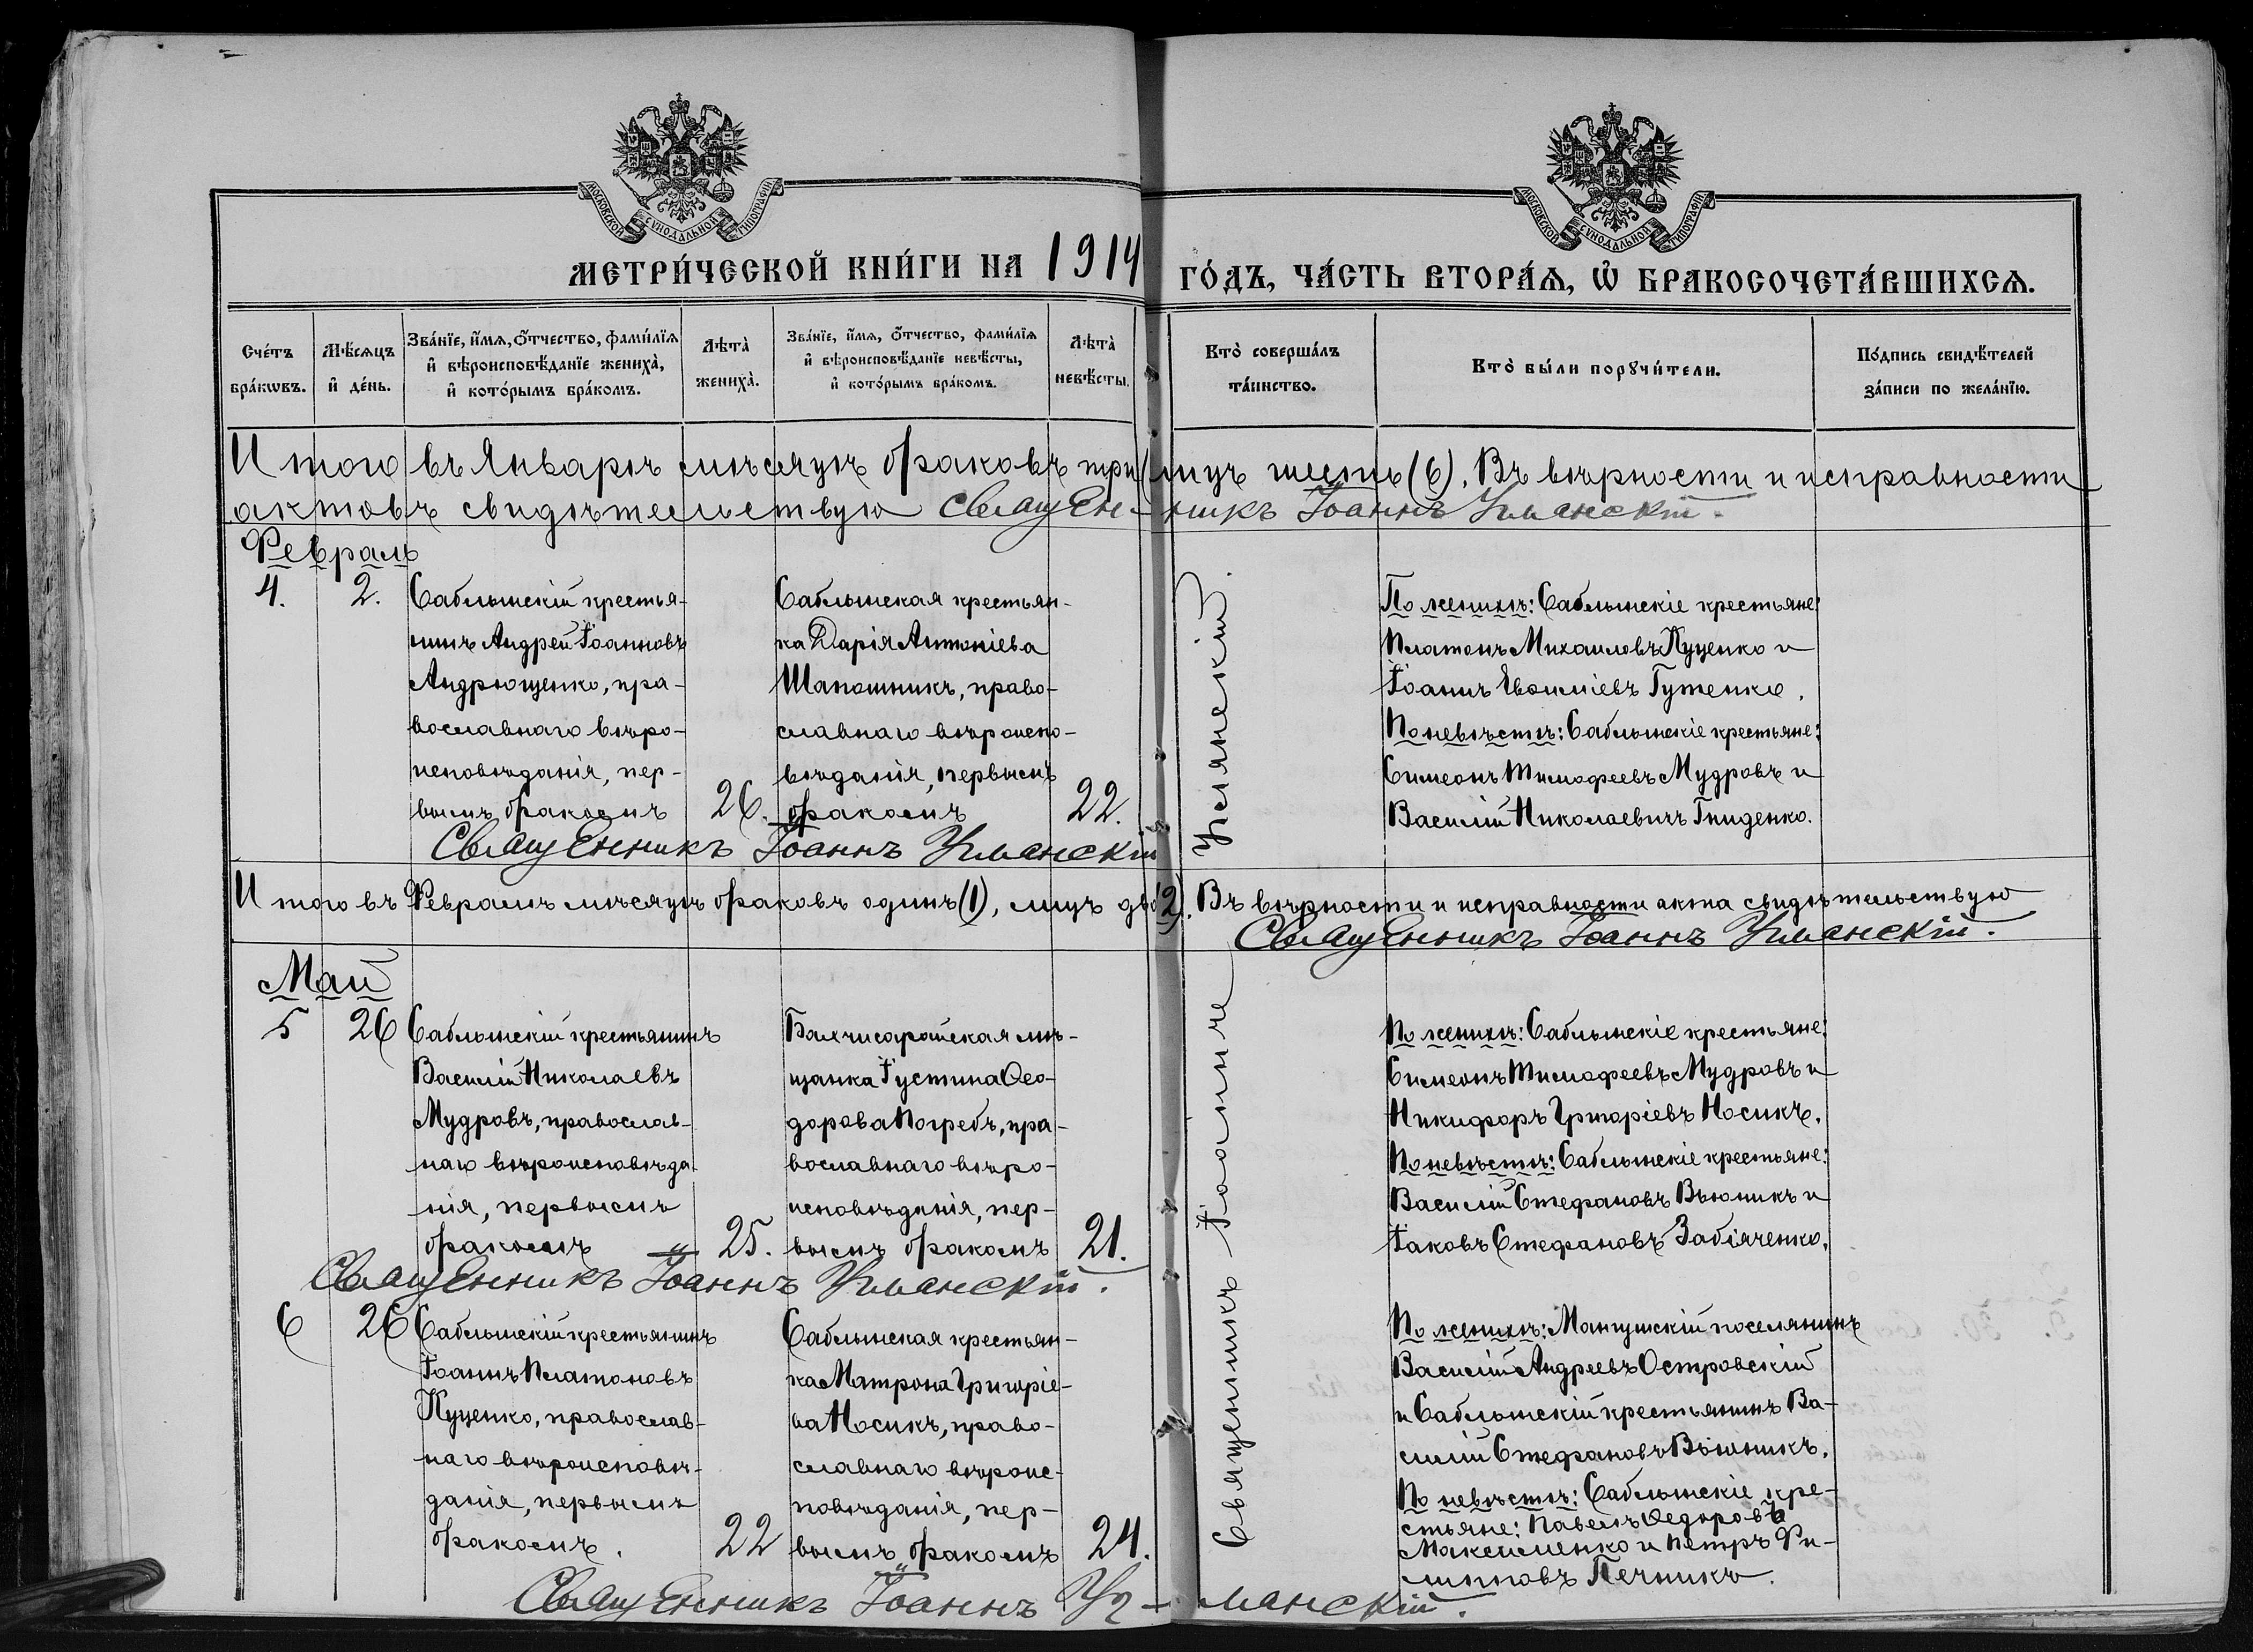 МОСКОВСКОЙ СУНОДАЛЬНОЙ ТИПОГРАФІИ
МОСКОВСКОЙ СУНОДАЛЬНОЙ ТИПОГРАФІИ
МЕТРИ́ЧЕСКОЙ КНИ́ГИ НА 1914 ГО́ДЪ, ЧА́СТЬ ВТОРА́Ѧ, Ѽ БРАКОСОЧЕТА́ВШИХСѦ.
Сче́тъ
бра́кѡвъ.
Мѣ́сяцъ
и҆ де́нь.
Зва́нїе, и҆́мя, ѻ҆́тчество, фами́лїя
и҆ вѣроисповѣ́данїе жениха̀,
и҆ кото́рымъ бра́комъ.
Лѣта̀
жениха̀.
Зва́нїе, и҆́мя, ѻ҆́тчество, фами́лїя
и҆ вѣроисповѣ́данїе невѣ́сты,
и҆ кото́рымъ бра́комъ.
Лѣта̀
невѣ́сты.
Кто̀ соверша́лъ
та́инство.
Кто̀ бы́ли порꙋчи́тели.
По́дпись свидѣ́телей
за́писи по жела́нїю.
Итого въ Январѣ мѣсяцѣ браковъ три лицъ шесть (6). Въ вѣрности и исправности
актовъ свидѣтельствую Священникъ Іоаннъ Уманскій.
Февраль
4. 2.
Саблынскій крестья-
нинъ Андрей Іоанновъ
Андрющенко, пра-
вославнаго вѣро-
исповѣданія, пер-
вымъ бракомъ
26.
Саблынская крестьян-
ка Дарія Антоніева
Шапошникъ, право-
славнаго вѣроиспо-
вѣданія, первымъ
бракомъ
22.
По женихѣ: Саблынскіе крестьяне:
Платонъ Михаиловъ Куценко и
Іоаннъ Евфиміевъ Гутенко.
По невѣстѣ: Саблынскіе крестьяне:
Симеонъ Тимофеевъ Мудровъ и
Василій Николаевичъ Гниденко.
Священникъ Іоаннъ Уманскій
Итого въ Февралѣ мѣсяцѣ браковъ одинъ (1), лицъ два (2). Въ вѣрности и исправности акта свидѣтельствую
Священникъ Іоаннъ Уманскій.
Май
5 26
Саблынскій крестьянинъ
Василій Николаевъ
Мудровъ, православ-
наго вѣроисповѣда-
нія, первымъ
бракомъ
25.
Бахчисарайская мѣ-
щанка Іустина Ѳео-
дорова Погребъ, пра-
вославнаго вѣро-
исповѣданія, пер-
вымъ бракомъ
21.
По женихѣ: Саблынскіе крестьяне:
Симеонъ Тимофеевъ Мудровъ и
Никифоръ Григоріевъ Носикъ.
По невѣстѣ: Саблынскіе крестьяне:
Василій Стефановъ Вьюникъ и
Іаковъ Стефановъ Забіяченко.
Священникъ Іоаннъ Уманскій.
6 26
Саблынскій крестьянинъ
Іоаннъ Платоновъ
Куценко, православ-
наго вѣроисповѣ-
данія, первымъ
бракомъ.
22
Саблынская крестьян-
ка Матрона Григоріе-
ва Носикъ, право-
славнаго вѣроис-
повѣданія, пер-
вымъ бракомъ
24.
По женихѣ: Мангушскій поселянинъ
Василій Андреевъ Островскій
и Саблынскій крестьянинъ Ва-
силій Стефановъ Вьюникъ.
По невѣстѣ: Саблынскіе кре-
стьяне: Павелъ Ѳедоровъ
Максименко и Петръ Фи-
липповъ Печникъ.
Священникъ Іоаннъ Уманскій
Священникъ Іоаннъ Уманскій.